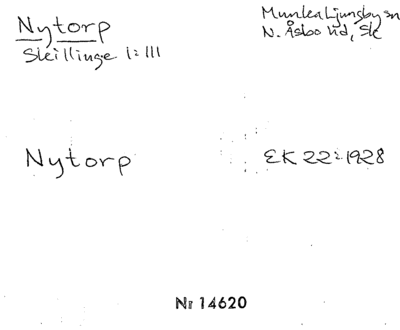 Nytorp
Skillinge 1:111
Munka Ljungby sn
N. Åsbo hd, Sk
Nytorp
EK 22:1928
No 14620